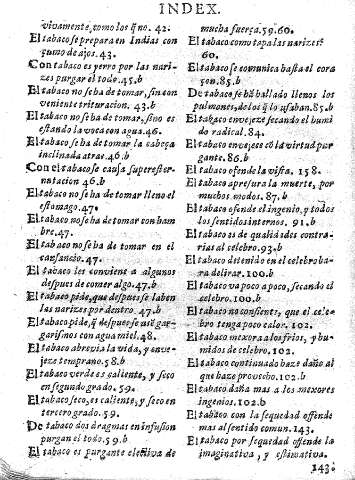 INDEX.
vivamente, como los q̃ no. 42.
El tabaco se prepara en Indias con
fumo de ajos. 43.
Con tabaco es yerro por las nari-
zes purgar el todo. 45.b
El tabaco no se ha de tomar, sin con
veniente trituracion. 43.b
El tabaco no se ha de tomar, sino es
estando la voca con agua. 46.
El tabaco no se ha de tomar la cabeça
inclinada atras. 46.b
Con el tabaco se causa superester-
nutacion 46.b
El tabaco no se ha de tomar lleno el
estomago. 47.
El tabaco no se ha de tomar con ham
bre. 47.
El tabaco no se ha de tomar en el
cansancio. 47.
El tabaco les conviene a algunos
despues de comer algo. 47.b
El tabaco pide, que despues se laben
las narizes por dentro. 47.b
El tabaco pide, q̃ despues se use gar-
garismos con agua miel. 48.
El tabaco abrevia la vida, y enve-
jeze temprano. 58.b
El tabaco verde es caliente, y seco
en segundo grado. 59.
El tabaco seco, es caliente, y seco en
tercero grado. 59.
De tabaco dos dragmas en infusion
purgan el todo. 59.b
El tabaco es purgante electiva de
mucha fuerça. 59.60.
El tabaco como tapa las narizes?
60.
El tabaco se comunica hasta el cora
son. 85.b
De tabaco se hã hallado llenos los
pulmones, de los q̃ lo usaban. 85.b
El tabaco envejeze secando el humi
do radical. 84.
El tabaco envejeze cõ la virtud pur
gante. 86.b
El tabaco ofende la vista. 158.
El tabaco apresura la muerte, por
muchos modos. 87.b
El tabaco ofende el ingenio, y todos
los sentidos internos. 91.b
El tabaco es de qualidades contra-
rias al celebro. 93.b
El tabaco detenido en el celebro ha-
ra delirar. 100.b
El tabaco va poco a poco, secando el
celebro. 100.b
El tabaco no consiente, que el cele-
bro tenga poco calor. 102.
El tabaco mexora a los frios, y hu-
midos de celebro. 102.
El tabaco continuado haze daño al
que haze provecho. 102.b
El tabaco daña mas a los mexores
ingenios. 102.b
El tabaco con la sequedad ofende
mas al sentido comun. 143.
El tabaco por sequedad offende la
imaginativa, y estimativa.
143.